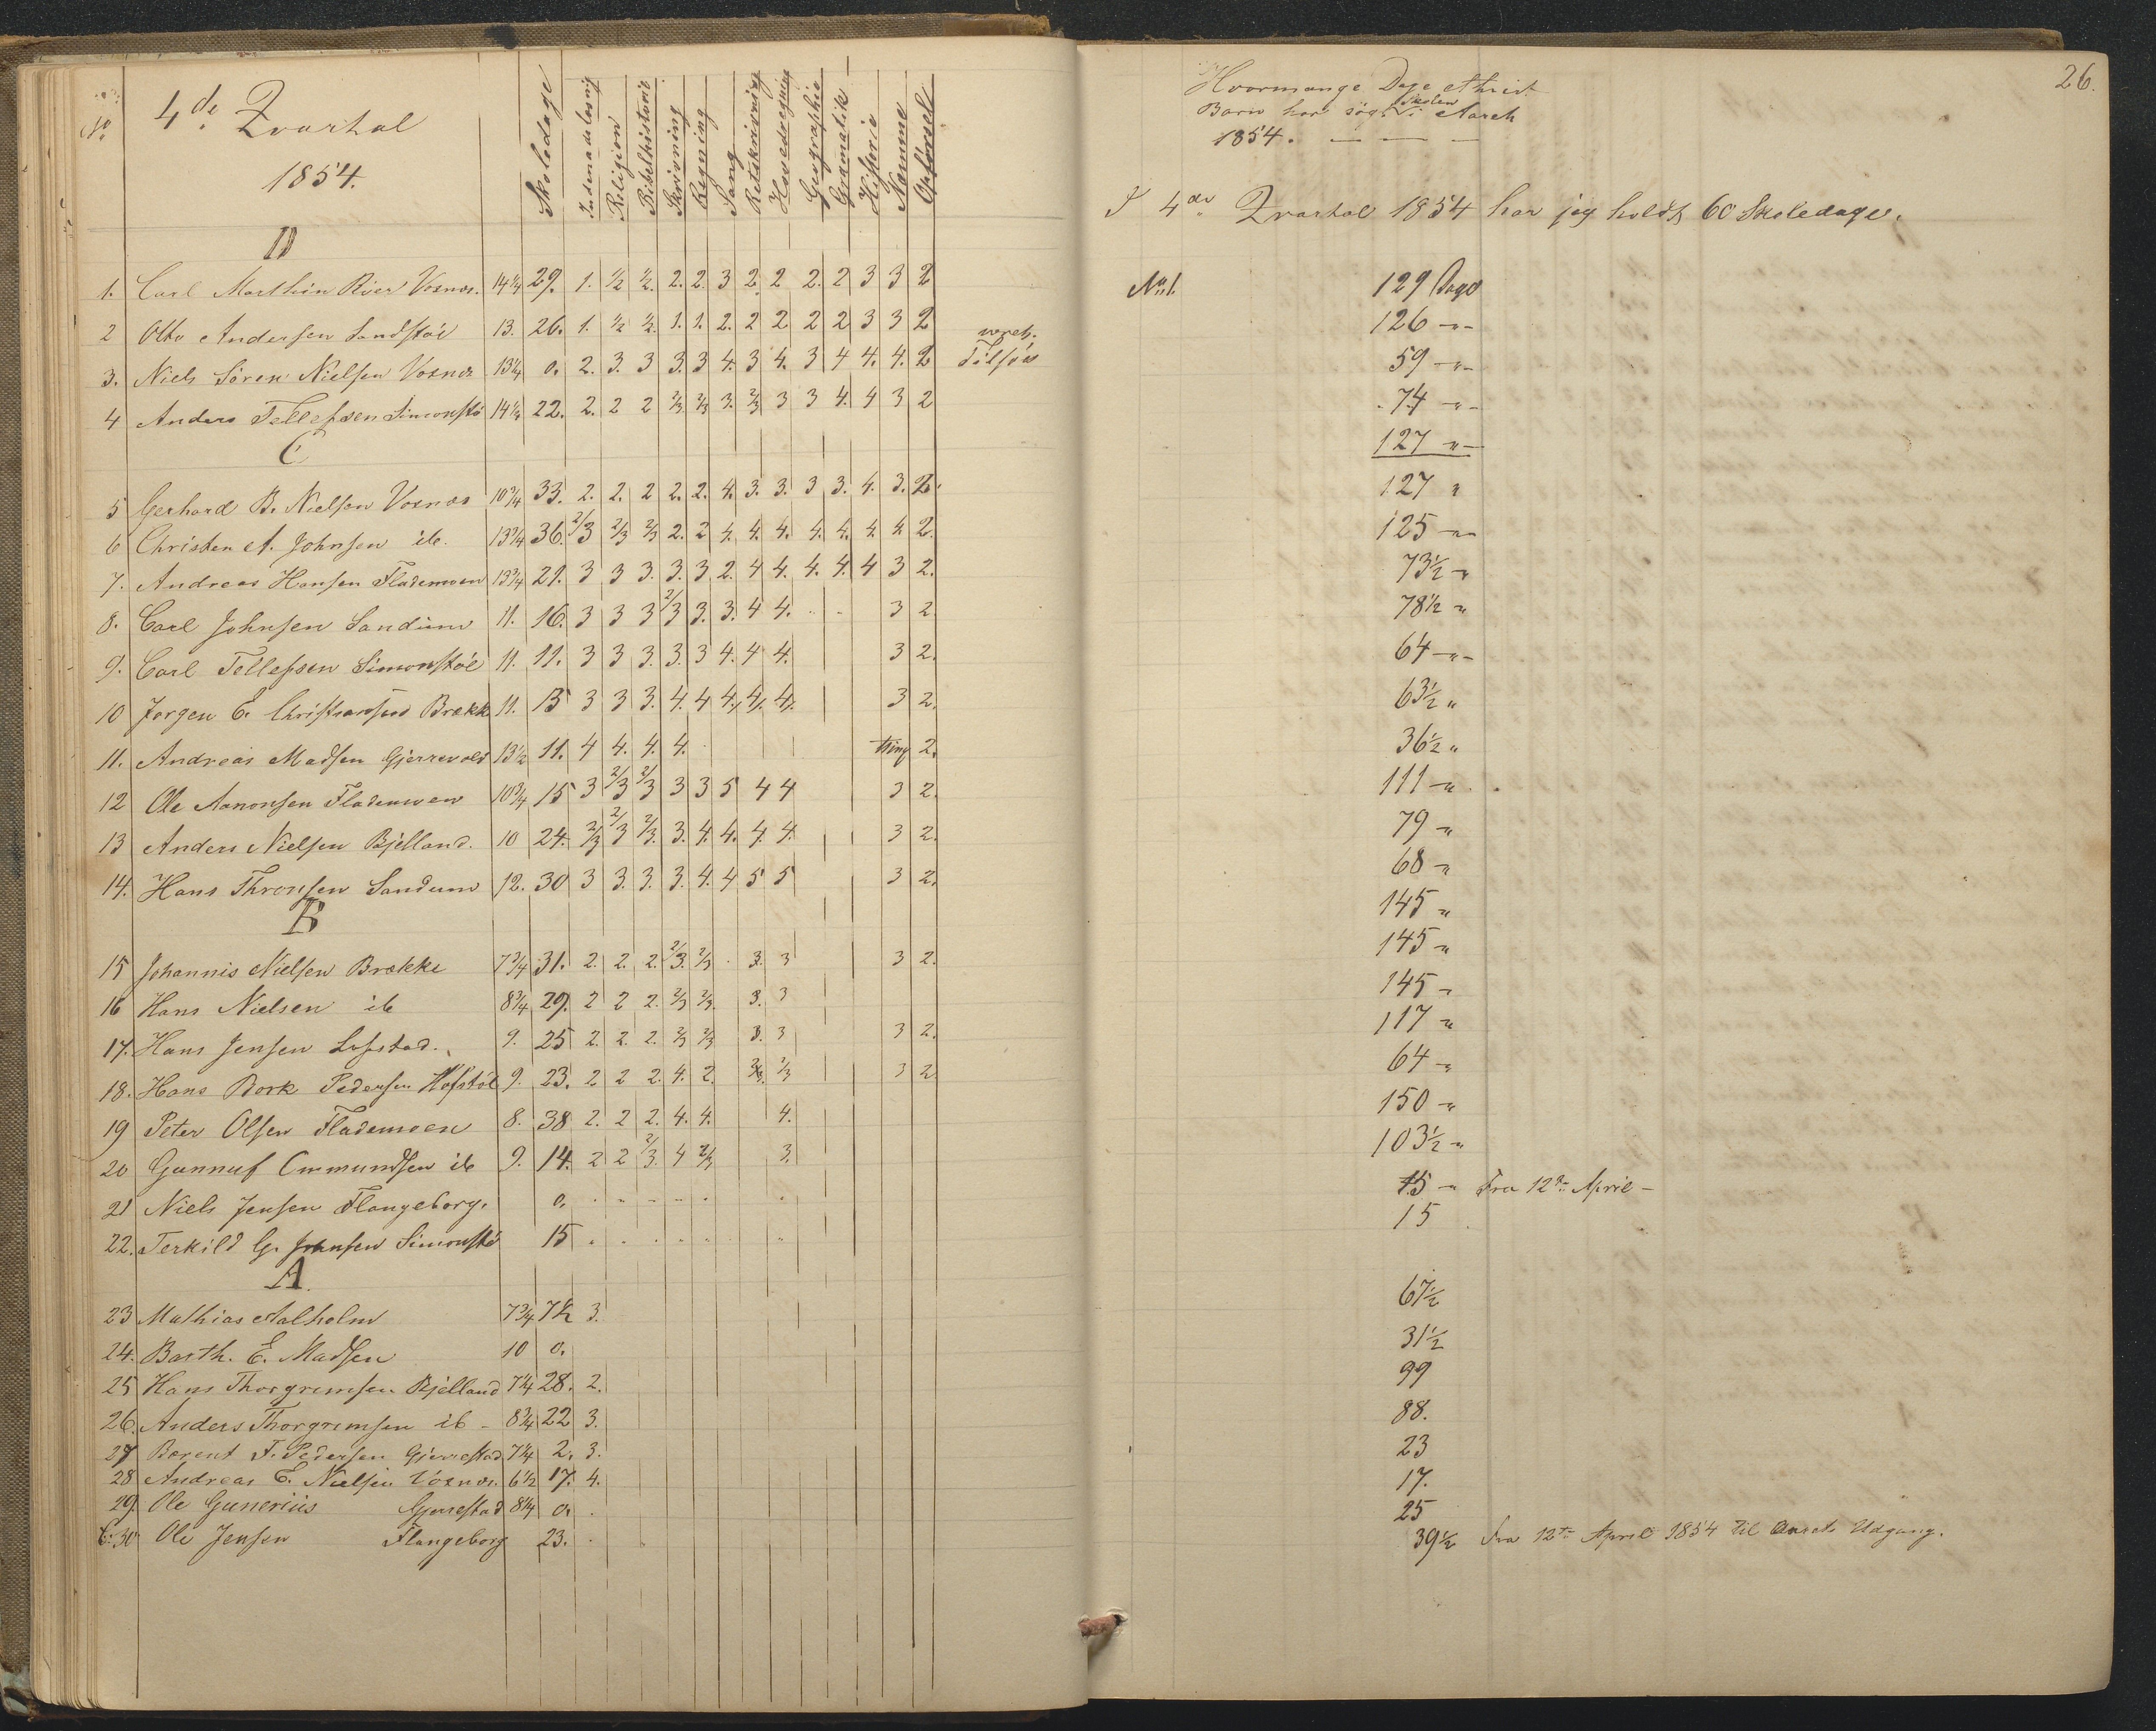 No
4de Qvartal
1854.
Skoledage
Indenadslæsning
Religion
Bibelhistorie
Skrivning
Regning
Sang
Retskrivning
Hovedregning
Geographie
Gramatik
Historie
Nemme
Opførsel
D
1. Carl Marthin Riier Vosnes. 14¼ 29. 1. ½ ½. 2. 2. 3 2. 2 2. 2 3 3 2
2 Otto Andersen Sandstøl 13. 26. 1. ½ ½. 1. 1. 2. 2 2 2 2 3 3 2
3. Niels Søren Nielsen Vosnes 13¼ 0. 2. 3. 3 3. 3 4. 3 4. 3 4 4. 4. 2 tilsøes
4 Anders Tellefsen Simonstø 14½ 22. 2. 2 2 2/3 2/3 3. 2/3 3 3 4. 4 3 2
C
5 Gerhard B. Nielsen Vosnes 10¾ 33. 2. 2. 2 2. 2. 4. 3. 3. 3 3. 4. 3. 2.
6 Christen A. Johnsen ib. 13¾ 36. 2/3 2/3 2/3 2. 2 4. 4. 4. 4. 4. 4. 4. 2.
7. Andreas Hansen Flademoen 13¾ 21. 3 3 3. 3. 3 2. 4 4. 4. 4. 4 3 2.
8. Carl Johnsen Sandum 11. 16. 3 3 3 2/3 3. 3. 4 4. 3 2.
9. Carl Tellefsen Simonstøl 11. 11. 3 3 3. 3. 3 4. 4 4. 3 2.
10 Jørgen E. Christiansen Brekke 11. 15 3 3 3. 4. 4 4. 4. 4. 3 2.
11. Andreas Madsen Gjerrevold 13½ 11. 4 4. 4. 4. tring 2.
12 Ole Aanonsen Flademoen 10¾ 15 3 2/3 2/3 3 3 5 4 4 3 2.
13 Anders Nielsen Bjelland. 10 24. 2/3 2/3 2/3. 3. 4. 4. 4. 4. 3 2.
14. Hans Thronsen Sandum 12. 30 3 3. 3. 3. 4. 4 5 5 3 2.
B
15 Johannis Nielsen Brække 7¾ 31. 2. 2. 2. 2/3. 2/3 . 3. 3 3 2.
16 Hans Nielsen ib 8¾ 29. 2 2 2. 2/3 2/3. 3. 3
17. Hans Jensen Lofstad. 9. 25 2. 2. 2. 2/3 2/3 3. 3 3 2.
18. Hans Bork Pedersen Hofstøl 9. 23. 2 2 2. 4. 2. 2/3. 2/3 3 2
19 Peter Olsen Flademoen 8. 38 2. 2 2. 4. 4. 4.
20 Gunnuf Ommundsen ib 9. 14. 2 2 2/3. 4 2/3 3.
21 Niels Jensen Flangeborg. 0.
22. Terkild G. Johnsen Simonstø 15
A.
23 Mathias Aalholm 7¾ 7½ 3.
24. Barth. E. Madsen 10 0.
25 Hans Thorgrimsen Bjelland 7¼ 28. 2.
26. Anders Thorgrimsen ib - 8¾ 22 3.
27 Berent F. Pedersen Gjerrestad 7¼ 2. 3.
28 Andreas E. Nielsen Vosnes. 6½ 17. 4.
29. Ole Gunerius Gjerrestad 8¼ 0.
30 Ole Jensen Flangeborg 23.
26.
Hvormange Dage ethvert
Barn har søgt Skolen i Aaret
1854.
I 4de Qvartal 1854 har jeg holdt 60 Skoledage.
No 1. 129 Dage
126 -"-
59 -"-
74 -"-
127 -"-
127 "
125 -"-
73½ -"
78½ "
64 -"-
63½ "
36½ "
111 -"
79 -"
68 -"
145 "
145 -"
145 -"
117 -"
64 -"
150 -"
103½ -"
15 -" Fra 12te April -
15
67½
31½
99
88.
23
17.
25
39½ Fra 12te April 1854 til Aarets Udgang.